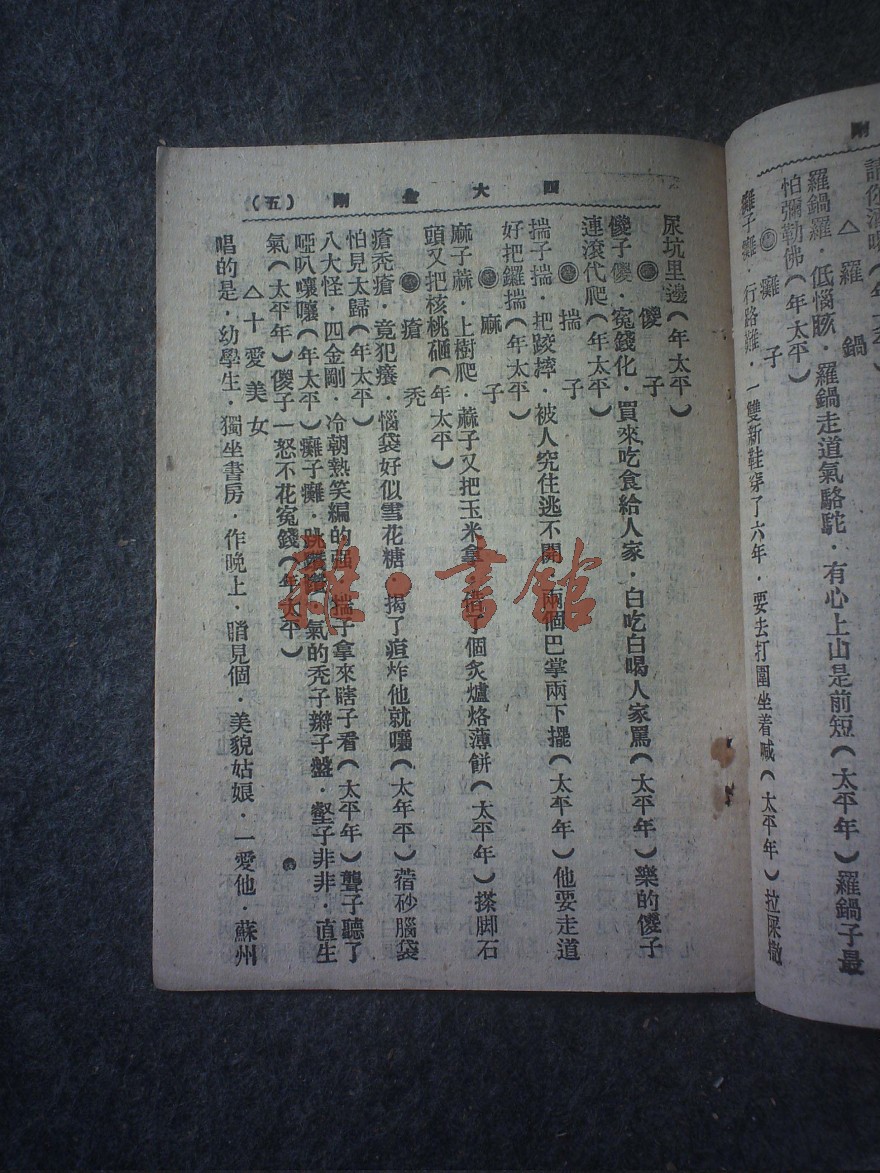 剛
請你酒
△羅鍋
羅鍋羅．低惱胲．羅鍋走道氣駱駝．有心上山是前短（太平年）羅鍋子最
怕彌勒佛（年太平）
癱子
癱子癱．行路難．一雙新鞋穿了六年．要去打圍坐着喊（太平年）拉屎撤
四大金剛（五）
尿坑里邊（年太平）
儍子
儍子儍．寃錢化．買來吃食給人家．白吃白喝人家罵（太平年）樂的儍子
連滾代爬（年太平）
揣子
揣子揣．把跤摔．被人究住逃不開．兩個巴掌兩下擺（太平年）他要走道
好把鑼揣（年太平）
麻子
麻子蔴．上樹爬．蔴子又把玉米拿．借了個炙爐烙薄餅（太平年）搽脚石
頭又把核桃砸（年太平）
瘡禿
瘡禿瘡．竟犯癢．惱袋好似雪花糖．揭了疸炸他就嚷（太年平）蓿砂腦袋
怕見太歸（年太平）
八大怪．四金剛．冷朝熱笑編的强．揣子拿來瞎子看（太平年）聾子聽了
啞叭嚷嚷（年太平）癱子癱．跳 氣的禿子辮子盤．壑子非非．直生
氣（太平年）儍子一怒不花寃錢（年太平）
△十愛美女
唱的是．幼學生．獨坐書房．作晚上．睄見個．美貌姑娘．一愛他．蘇州
雜·書館